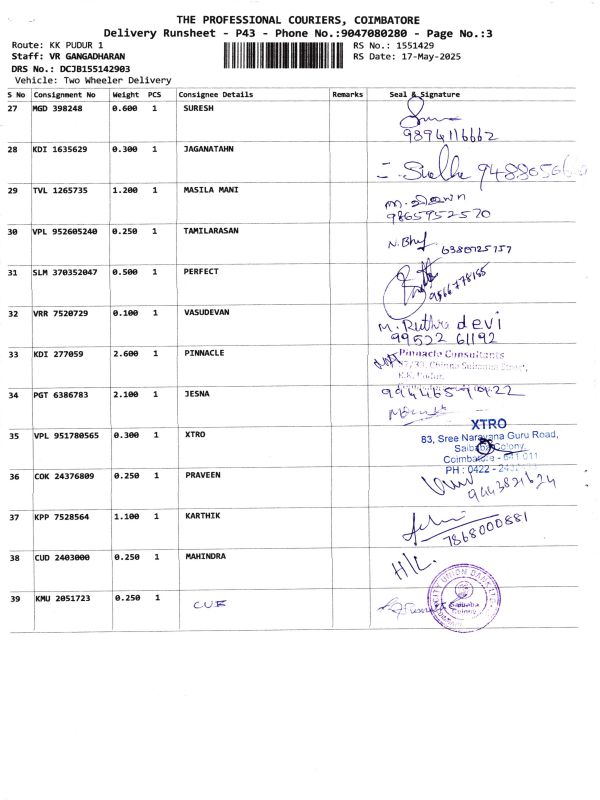 THE PROFESSIONAL COURIERS, COIMBATORE
Delivery Runsheet - P43 - Phone No.:9047080280 - Page No.:3
Route: KK PUDUR 1
RS No.: 1551429
Staff: VR GANGADHARAN
RS Date: 17-May-2025
DRS No.: DCJB155142903
Vehicle: Two Wheeler Delivery
S No Consignment No Weight PCS Consignee Details Remarks Seal & Signature
27 MGD 398248 0.600 1 SURESH
9894116662
28 KDI 1635629 0.300 1 JAGANATAHN
29 TVL 1265735 1.200 1 MASILA MANI
9865952520
30 VPL 952605240 0.250 1 TAMILARASAN
6380725757
31 SLM 370352047 0.500 1 PERFECT
9566778165
32 VRR 7520729 0.100 1 VASUDEVAN
M. Ruthra devi
99522 61192
33 KDI 277059 2.600 1 PINNACLE
Pinnacle Consultants
34 PGT 6386783 2.100 1 JESNA
35 VPL 951780565 0.300 1 XTRO
XTRO
83, Sree Narayana Guru Road,
Saibaba Colony,
Coimbatore - 641 011
PH : 0422 -
36 COK 24376809 0.250 1 PRAVEEN
9443821624
37 KPP 7528564 1.100 1 KARTHIK
7868000881
38 CUD 2403000 0.250 1 MAHINDRA
H/L.
39 KMU 2051723 0.250 1 CUB
CITY UNION BANK LTD.
Saibaba
Colony